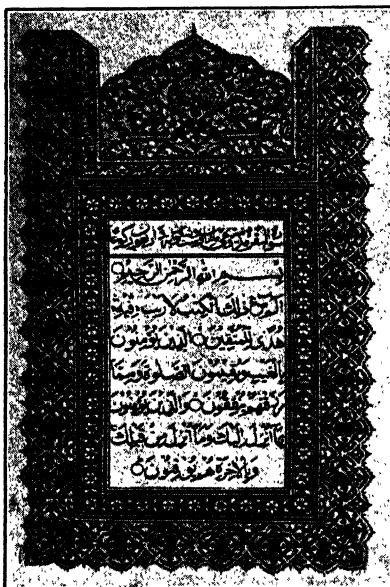 سورة البقرة مدنية
بسم الله الرحمن الرحيم
الم ذلك الكتب لا ريب فيه
هدى للمتقين الذين يؤمنون
بالغيب ويقيمون الصلوة ومما
رزقنهم ينفقون والذين يؤمنون
بما أنزل إليك وما أنزل من قبلك
وبالآخرة هم يوقنون